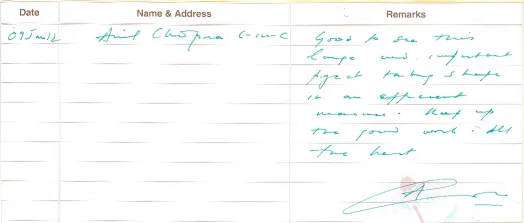 Date Name & Address Remarks
09 Jan 12 Anil Chopra C-in-C Good to see this
large and important
project taking shape
in an efficient
manner. Keep up
the good work. All
the best